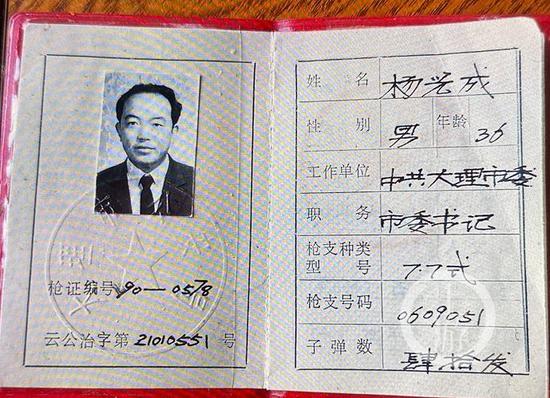 枪证编号 90—0578
云公治字第 21010551 号
姓 名
性 别 男 年龄 36
工作单位 中共大理市委
职 务 市委书记
枪支种类
型 号 7.7式
枪支号码 0609051
子弹数 肆拾发